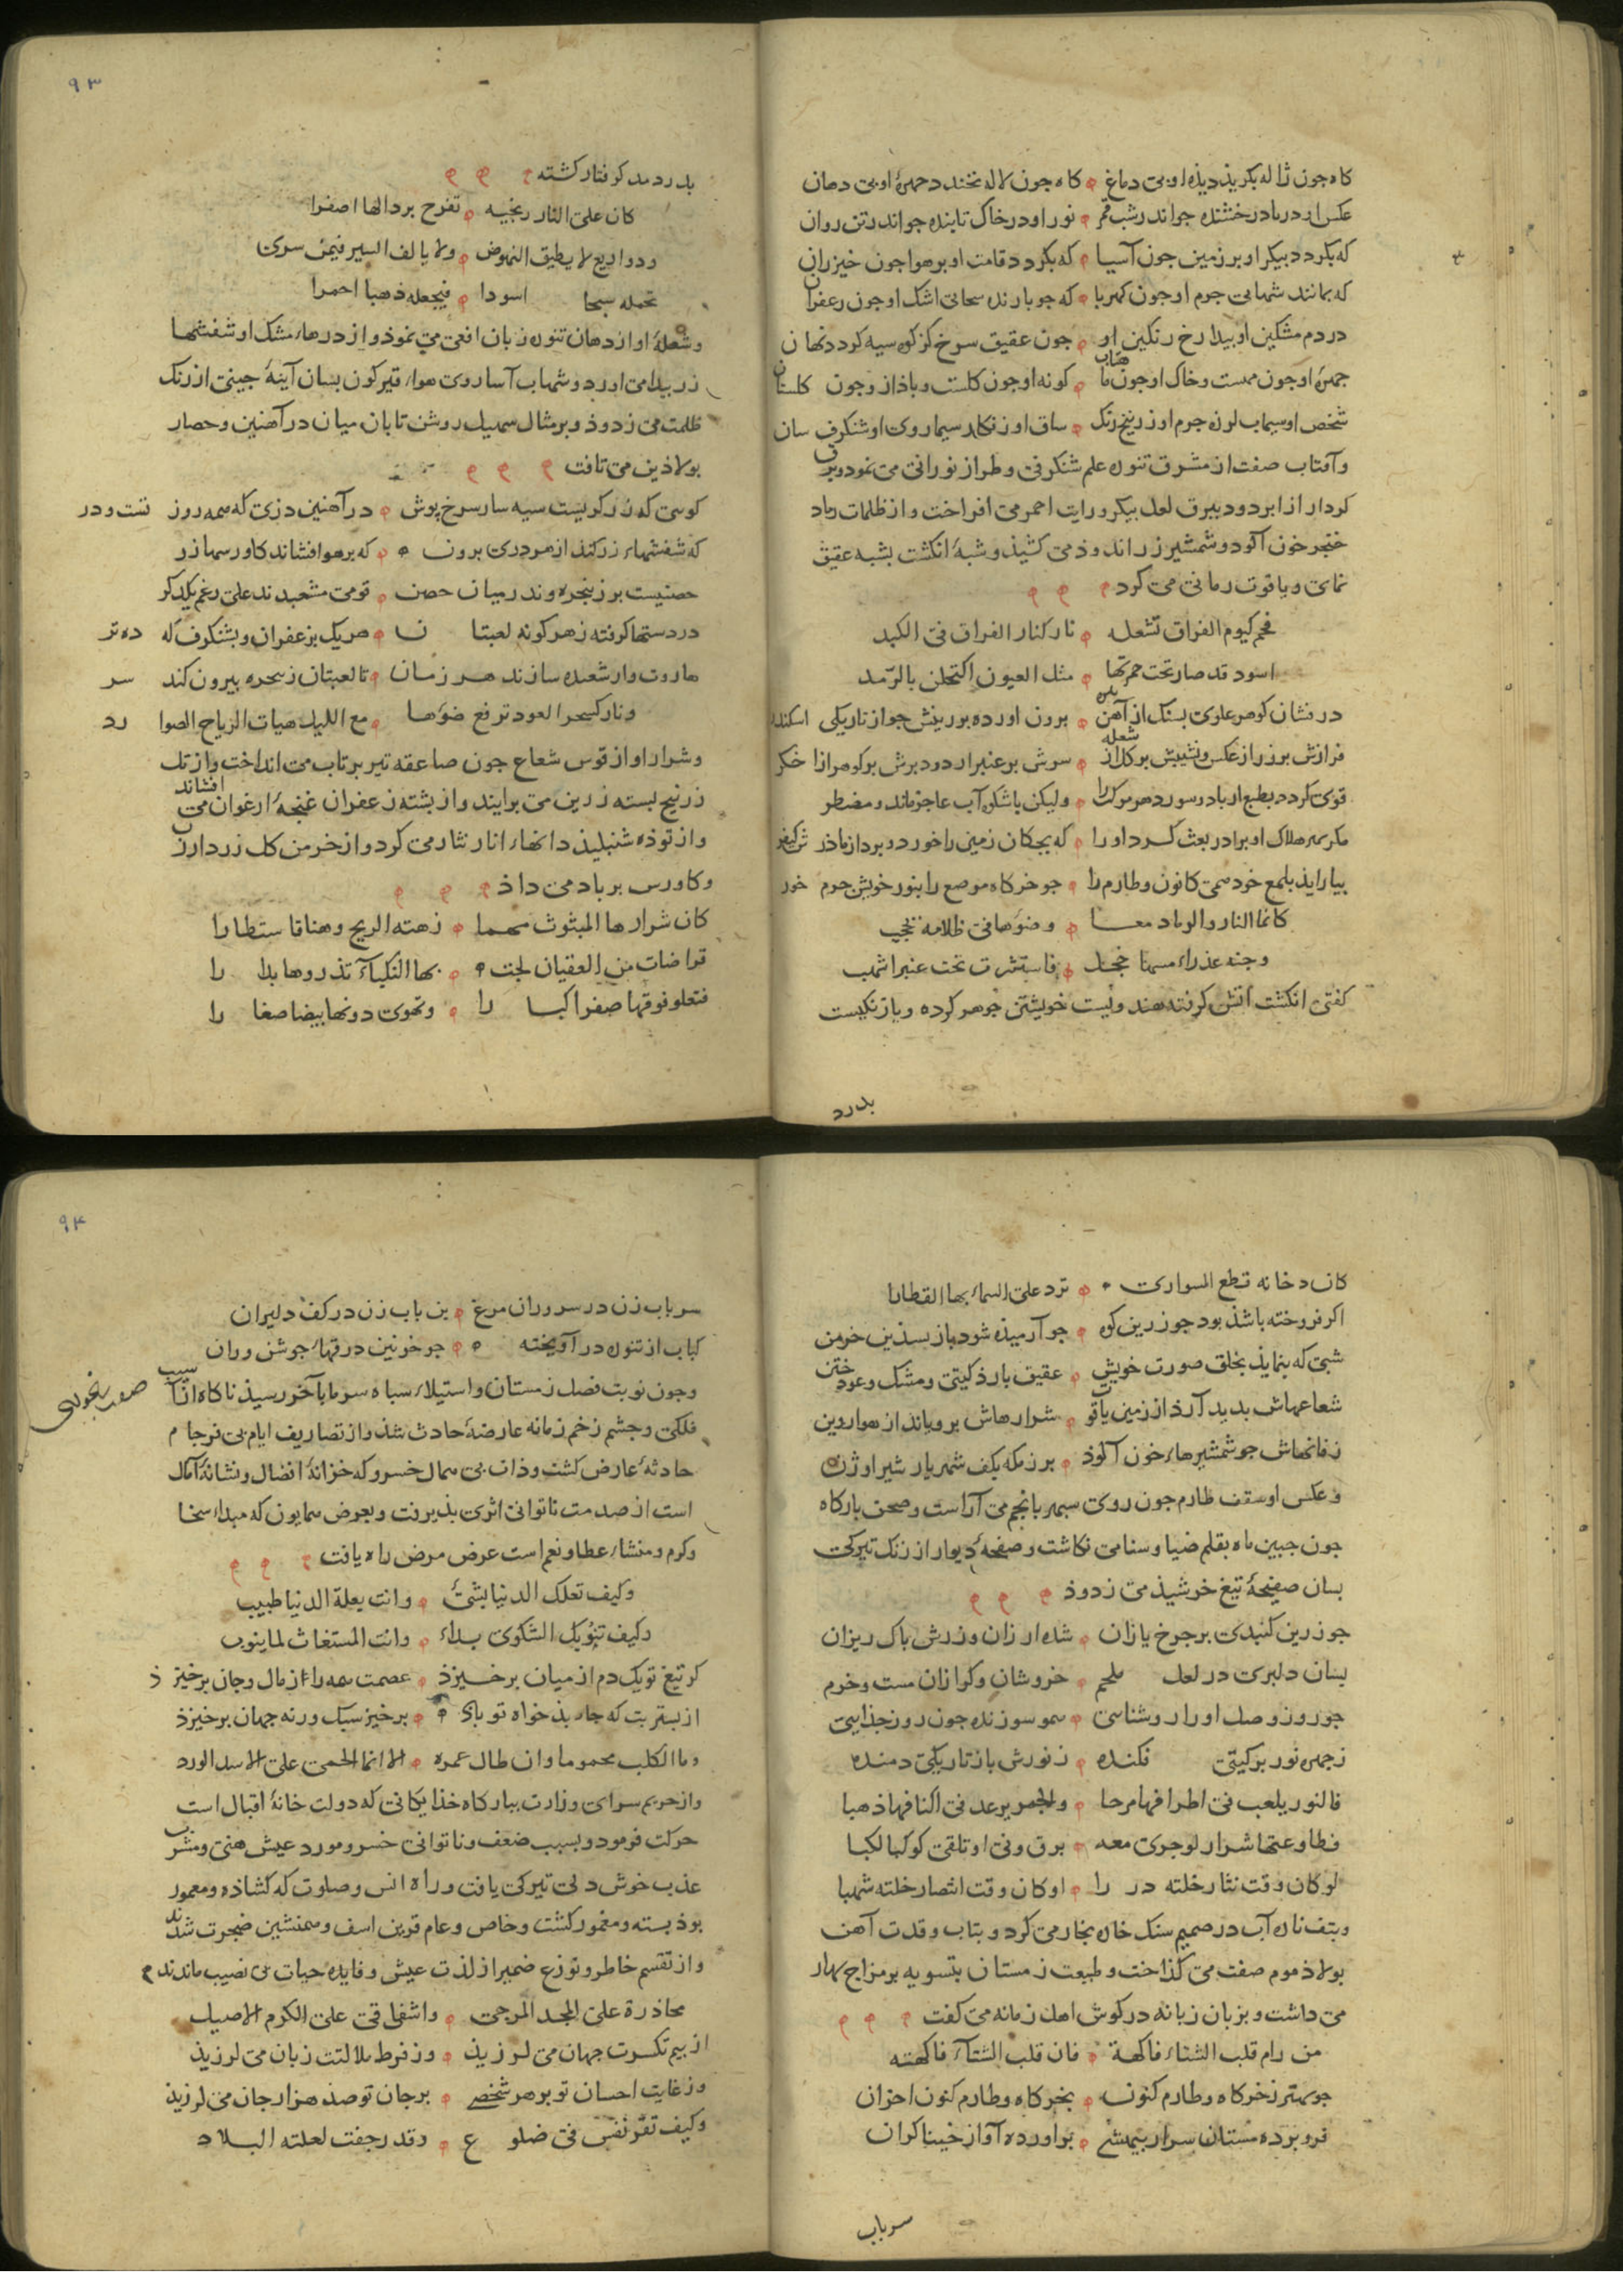 کاه جون ژاله بکرید دیذه او بی دماغ کاه جون لاله بخندد جهرهٔ او بی دهان
عکس او در باد رخشنده جو اندر شب قمر نور او در خاک تابنده جو اندر تن روان
که بکردد بیکر او بر زمین جون آسیا که بکردد قامت او بر هوا جون خیزران
که بمانند شهابی جرم او جون کهربا که جو بارنده سحابی اشک او جون زعفران
در دم مشکین او بیدا رخ رنکین او جون عقیق سرخ کز کوه سیه کردد نهان
شخص او سیماب لون جرم او زرنیخ رنک ساق او زنکار سیما روی او شنکرف سان
و آفتاب صفت از مشرق تنوره علم شنکرفی و طراز نورانی می نمود و برق
کردار از ابر دود بیرق لعل بیکر و رایت احمر می افراخت و از ظلمات رماد
خنجر خون آلود و شمشیر زر اندوذ می کشیذ و شبهٔ انکشت بشبه عقیق
نمای و یاقوت رمانی می کرد
فحم کیوم الفراق تشعله نار کنار الفراق فی الکبد
اسود قد صار تحت حمرتها مثل العیون اکتحلن بالرّمد
درفشان کوهر علوی بسنک از آهن برون اورده بوریش جو از تاریکی اسکندر
شعله
قوی کردد بطبع از باد و سوزد هر مرکب را ولیکن باشکوه آب عاجز ماند و مضطر
بیاراید بلمع خود همی کانون و طارم را جو خرکاه مرصع را بنور خویش جرم خور
کانما النار والرماد معا وضوءها فی ظلامه تحجب
وجنه عذراء مسها خجل فاستترت تحت عنبر اشهب
کفتی انکشت آتش کرفته هندویست خویشتن جوهر کرده و باز نکیست
بدرد
۹۳
بدرد مد کرفتار کشته
کان علی النار نارنجیه تفرح بردالها اصفرا
ودو اربع لا یطیق النهوض ولا یالف السیر فیمن سری
تحمله سبجا اسودا فیجعله ذهبا احمرا
وشعلهٔ او از دهان تنوره زبان افعی می نموذ و از درهاء مشک او شفشهاء
زر بیدا می اورد و شهاب آسا روی هواء قیر کون بسان آینهٔ جینی از زنک
ظلمت می زدوذ و بر مثال سهیل روشن تابان میان در آهنین و حصار
بولاذین می تافت
کوسی که زر کریست سیه سار سرخ بوش در آهنین دزی که همه روز تست و در
که شفشهاء زر کند از هر دری برون که بر هوا فشاند کاورسها زر
حصنیست بر زبنجره وندر میان حصن قومی مشعبدند علی رغم یکدکر
در دستها کرفته ز هر کونه لعبتان هر یک بزعفران و بشنکرف کرده تر
هاروت وار شعبده سازند هر زمان تا لعبتان ز سحره بیرون کند سر
ونار کسحر العود ترفع ضوءها مع اللیل هبات الریاح الصوارد
وشرار او از قوس شعاع جون صاعقه تیر برتاب می انداخت و از تک
زرنیخ بسته زرین می برایند و از بشته زعفران غنجهٔ ارغوان می افشاند
و از توده شنبلیذ دانهاء انار نثار می کرد و از خرمن کل زر دارزن
و کاورس بر باد می داذ
کان شرارها المبثوث سهما زهته الریح وهنا فاستطارا
قراضات من العقیان لجت بها النکباء تذروها بدارا
فتعلو فوقها صفرا کبارا وتهوی دونها بیضا صغارا
کان دخانه قطع السواری ترد علی السماء بها القطارا
اکر فروخته باشذ بود جو زرین کوه جو آرمیذه شود باز بسذین خرمن
شبی که بنمایذ بخلق صورت خویش عقیق بارذ کیتی و مشک و عود ختن
شعاعهاش بدید آرذ از زمین یاقوت شرارهاش برویاند از هوا روین
زفانهاش جو شمشیرهاء خون آلوذ برزمکه بکف شهریار شیر اوژن
وعکس او سقف طارم جون روی سبهر بانجم می آراست و صحن بارکاه
جون جبین ماه بقلم ضیا و سنا می نکاشت و صفحهٔ دیوار از زنک تیرکی
بسان صفیحهٔ تیغ خرشیذ می زدوذ
جو زرین کنبدی بر جرخ یازان شده ارزان وزرش باک ریزان
بسان دلبری در لعل ملحم خروشان و کرازان مست و خرم
جو روز وصل او را روشنایی همو سوزنده جون روز جذایی
ز جهره نور بر کیتی فکنده ز نورش باز تاریکی دمنده
فالنور یلعب فی اطرافها مرحا والجمر یرعد فی اکنافها ذهبا
وطاوعتها شرار لو جری معه برق ونی او تلقی کوکبا لکبا
لو کان وقت نثار خلته دررا او کان وقت انتصار خلته شهبا
وبتف نار آب در صمیم سنک خاره بخار می کرد و بتاب وقدت آهن
بولاذ موم صفت می کذاخت و طبیعت زمستان بتسویه بر مزاج بهار
می داشت و بزبان زبانه در کوش اهل زمانه می کفت
من رام قلب الشتاء فاکهة فان قلب الشتاء فاکهته
جو بهتر ز خرکاه و طارم کنون بخرکاه و طارم کنون احزان
فرو برده مستان سر از بیهشی براورده آواز خنیاکران
سر باب
۹۴
سر باب زن در سر و ران مرغ بن باب زن در کف دلبران
کباب از تنوره در آویخته جو خونین درقهاء جوشن وران
وجون نوبت فصل زمستان و استیلاء سباه سرما بآخر رسیذ ناکاه از آسیب
فلکی و جشم زخم زمانه عارضهٔ حادث شذ و از تصاریف ایام بی فرجام
حادثهٔ عارض کشت و ذات بی همال خسرو که خزانهٔ افضال و نشانهٔ آمال
است از صدمت ناتوانی اثری بذیرفت و بعرض همایون که مبداء سخا
و کرم و منشاء عطا و نعم است عرض مرض راه یافت
وکیف تعلک الدنیا بشئ وانت بعلة الدنیا طبیب
وکیف تنوبک الشکوی بداء وانت المستغاث لما ینوب
کر تیغ تو یک دم از میان برخیزذ عصمت همه را از مال و جان برخیزذ
از بستر تب که جای بذخواه تو باد برخیز سبک ورنه جهان برخیزذ
وما الکلب محموما وان طال عمره الا انما الحمی علی الاسد الورد
واز حریم سرای وزارت ببارکاه خذایکانی که دولت خانهٔ اقبال است
حرکت فرمود و بسبب ضعف و ناتوانی خسرو مورد عیش هنی و مشرب
عذب خوش دلی تیرکی یافت و راه انس و صلوت که کشاذه و معمور
بوذ بسته و مغمور کشت و خاص و عام قرین اسف و همنشین ضجرت شدند
و از تقسم خاطر و توزع ضمیر از لذت عیش و فایده حیات بی نصیب ماندند
محاذرة علی المجد المرجی واشفاقی علی الکرم الاصیل
از بیم تکسرت جهان می لرزیذ وز فرط ملالتت زبان می لرزیذ
وز غایت احسان تو بر هر شخصی بر جان تو صذ هزار جان می لرزیذ
وکیف تقر نفس فی ضلوع وقد رجفت لعلته البلاد